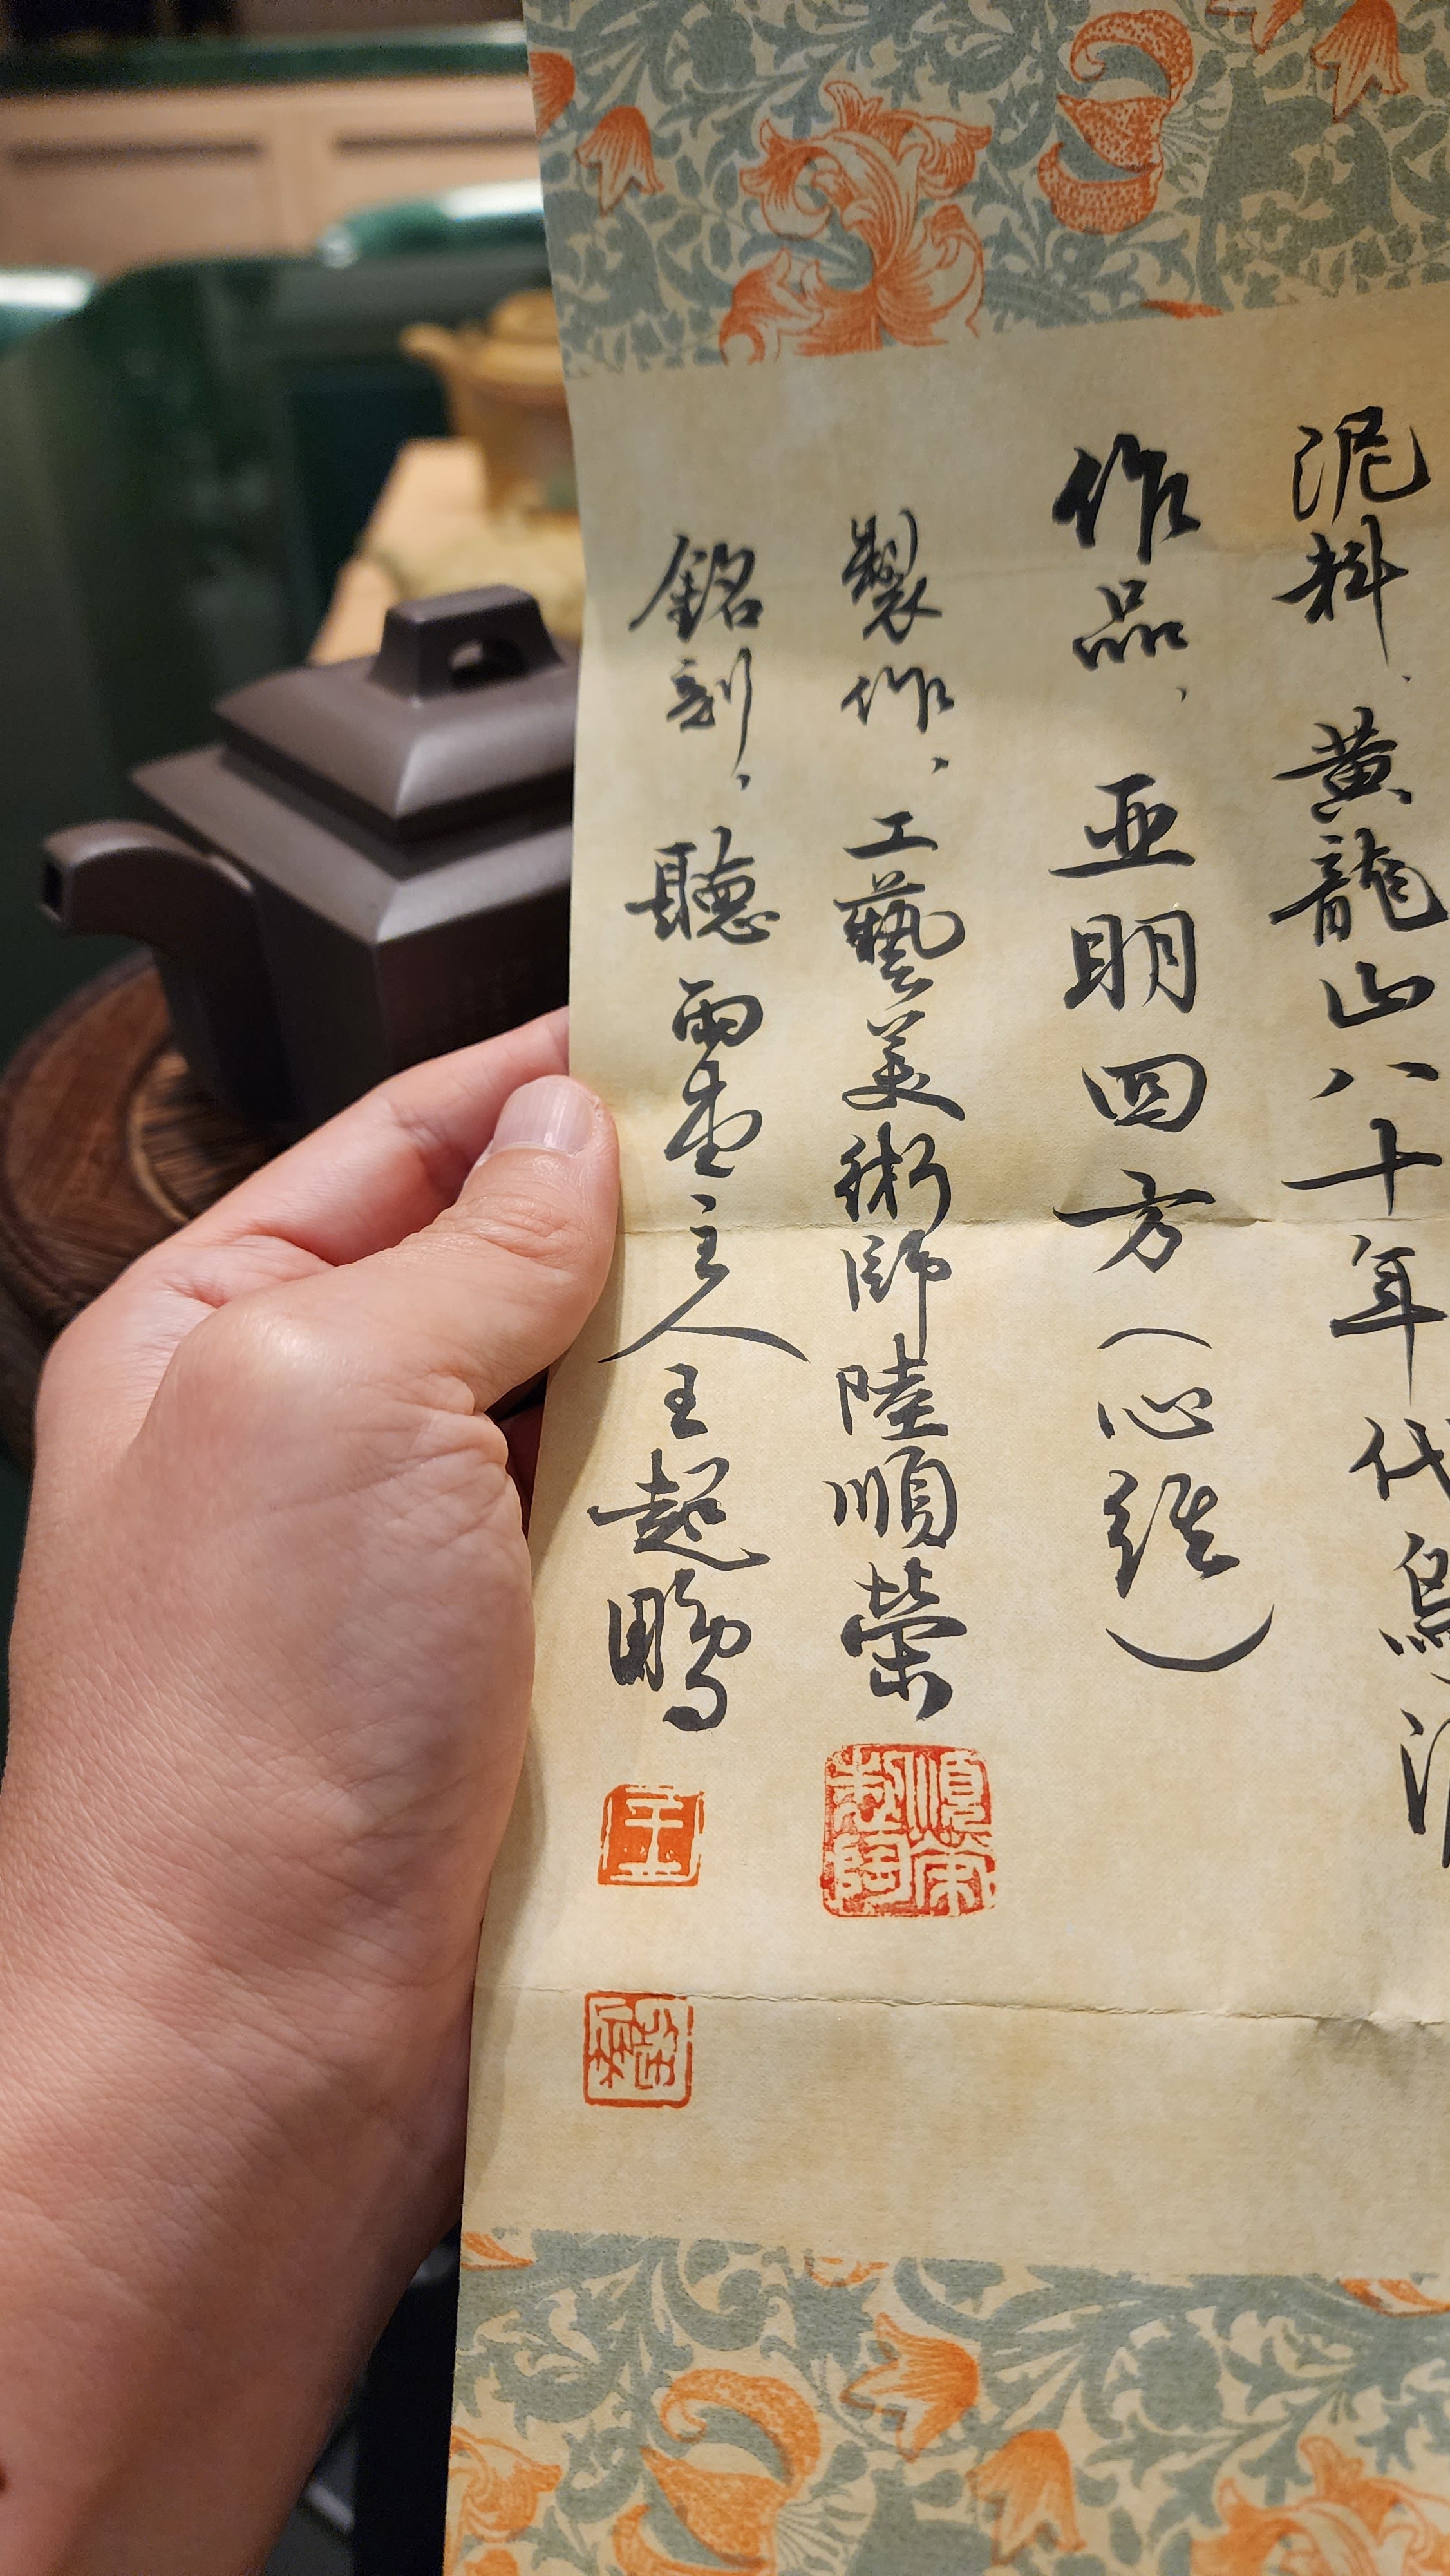 泥料、黃龍山八十年代烏泥
作品、亚明四方（心經）
製作、工藝美術師陸順榮
順榮製陶
銘刻、聽雨堂主人王起鵬
王